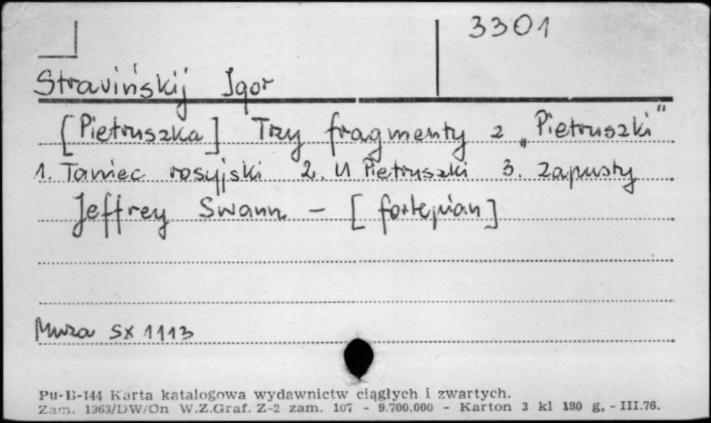 3301
Stravińskij Igor
[Pietruszka] Trzy fragmenty z „Pietruszki"
1. Taniec rosyjski 2. U Pietruszki 3. Zapusty
Jeffrey Swann - [fortepian]
Muza SX 1113
Pu-B-144 Karta katalogowa wydawnictw ciągłych i zwartych.
Zam. 1363/DW/On W.Z.Graf. Z-2 zam. 107 - 9.700.000 - Karton 3 kl 180 g. - III.76.